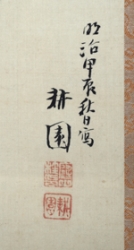 明治甲辰秋日寫
耕園